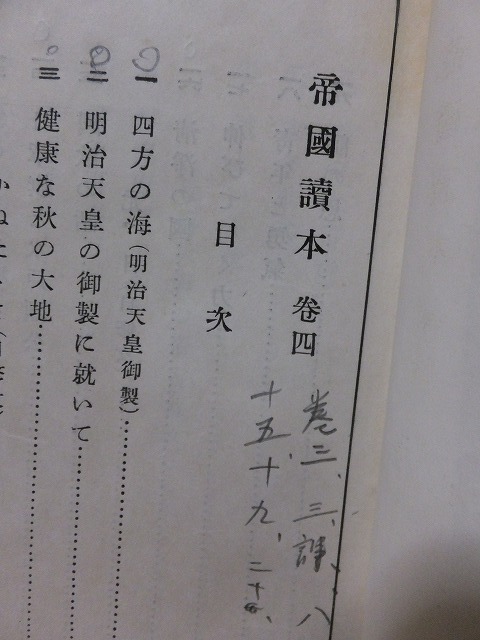 帝國讀本 卷四
卷三、三、課、八
十五、十九、二十
目次
一 四方の海(明治天皇御製)
二 明治天皇の御製に就いて
三 健康な秋の大地